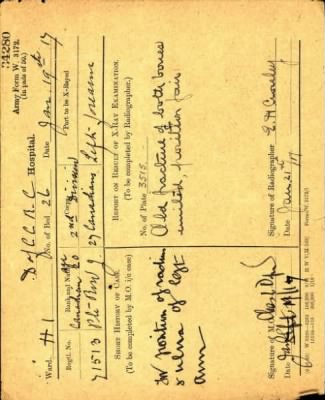 34280
Army Form W. 3172.
(In pads of 50.)
D of C.C.A.C Hospital.
Ward. H 1 No. of Bed 26 Date Jan. 19th 17
Regtl. No. Rank and Name Part to be X-Rayed
Canadian 2nd Division
71513 Pte Ross J 27 Canadians Left forearm
SHORT HISTORY OF CASE.
(To be completed by M.O. i/c case)
REPORT ON RESULT OF X-RAY EXAMINATION.
(To be completed by Radiographer.)
No. of Plate 3515
For position of radius
& ulna of left
arm
Old fracture of both bones
united, position fair
Signature of M.O.
Date
Signature of Radiographer
Date Jan 21st 17